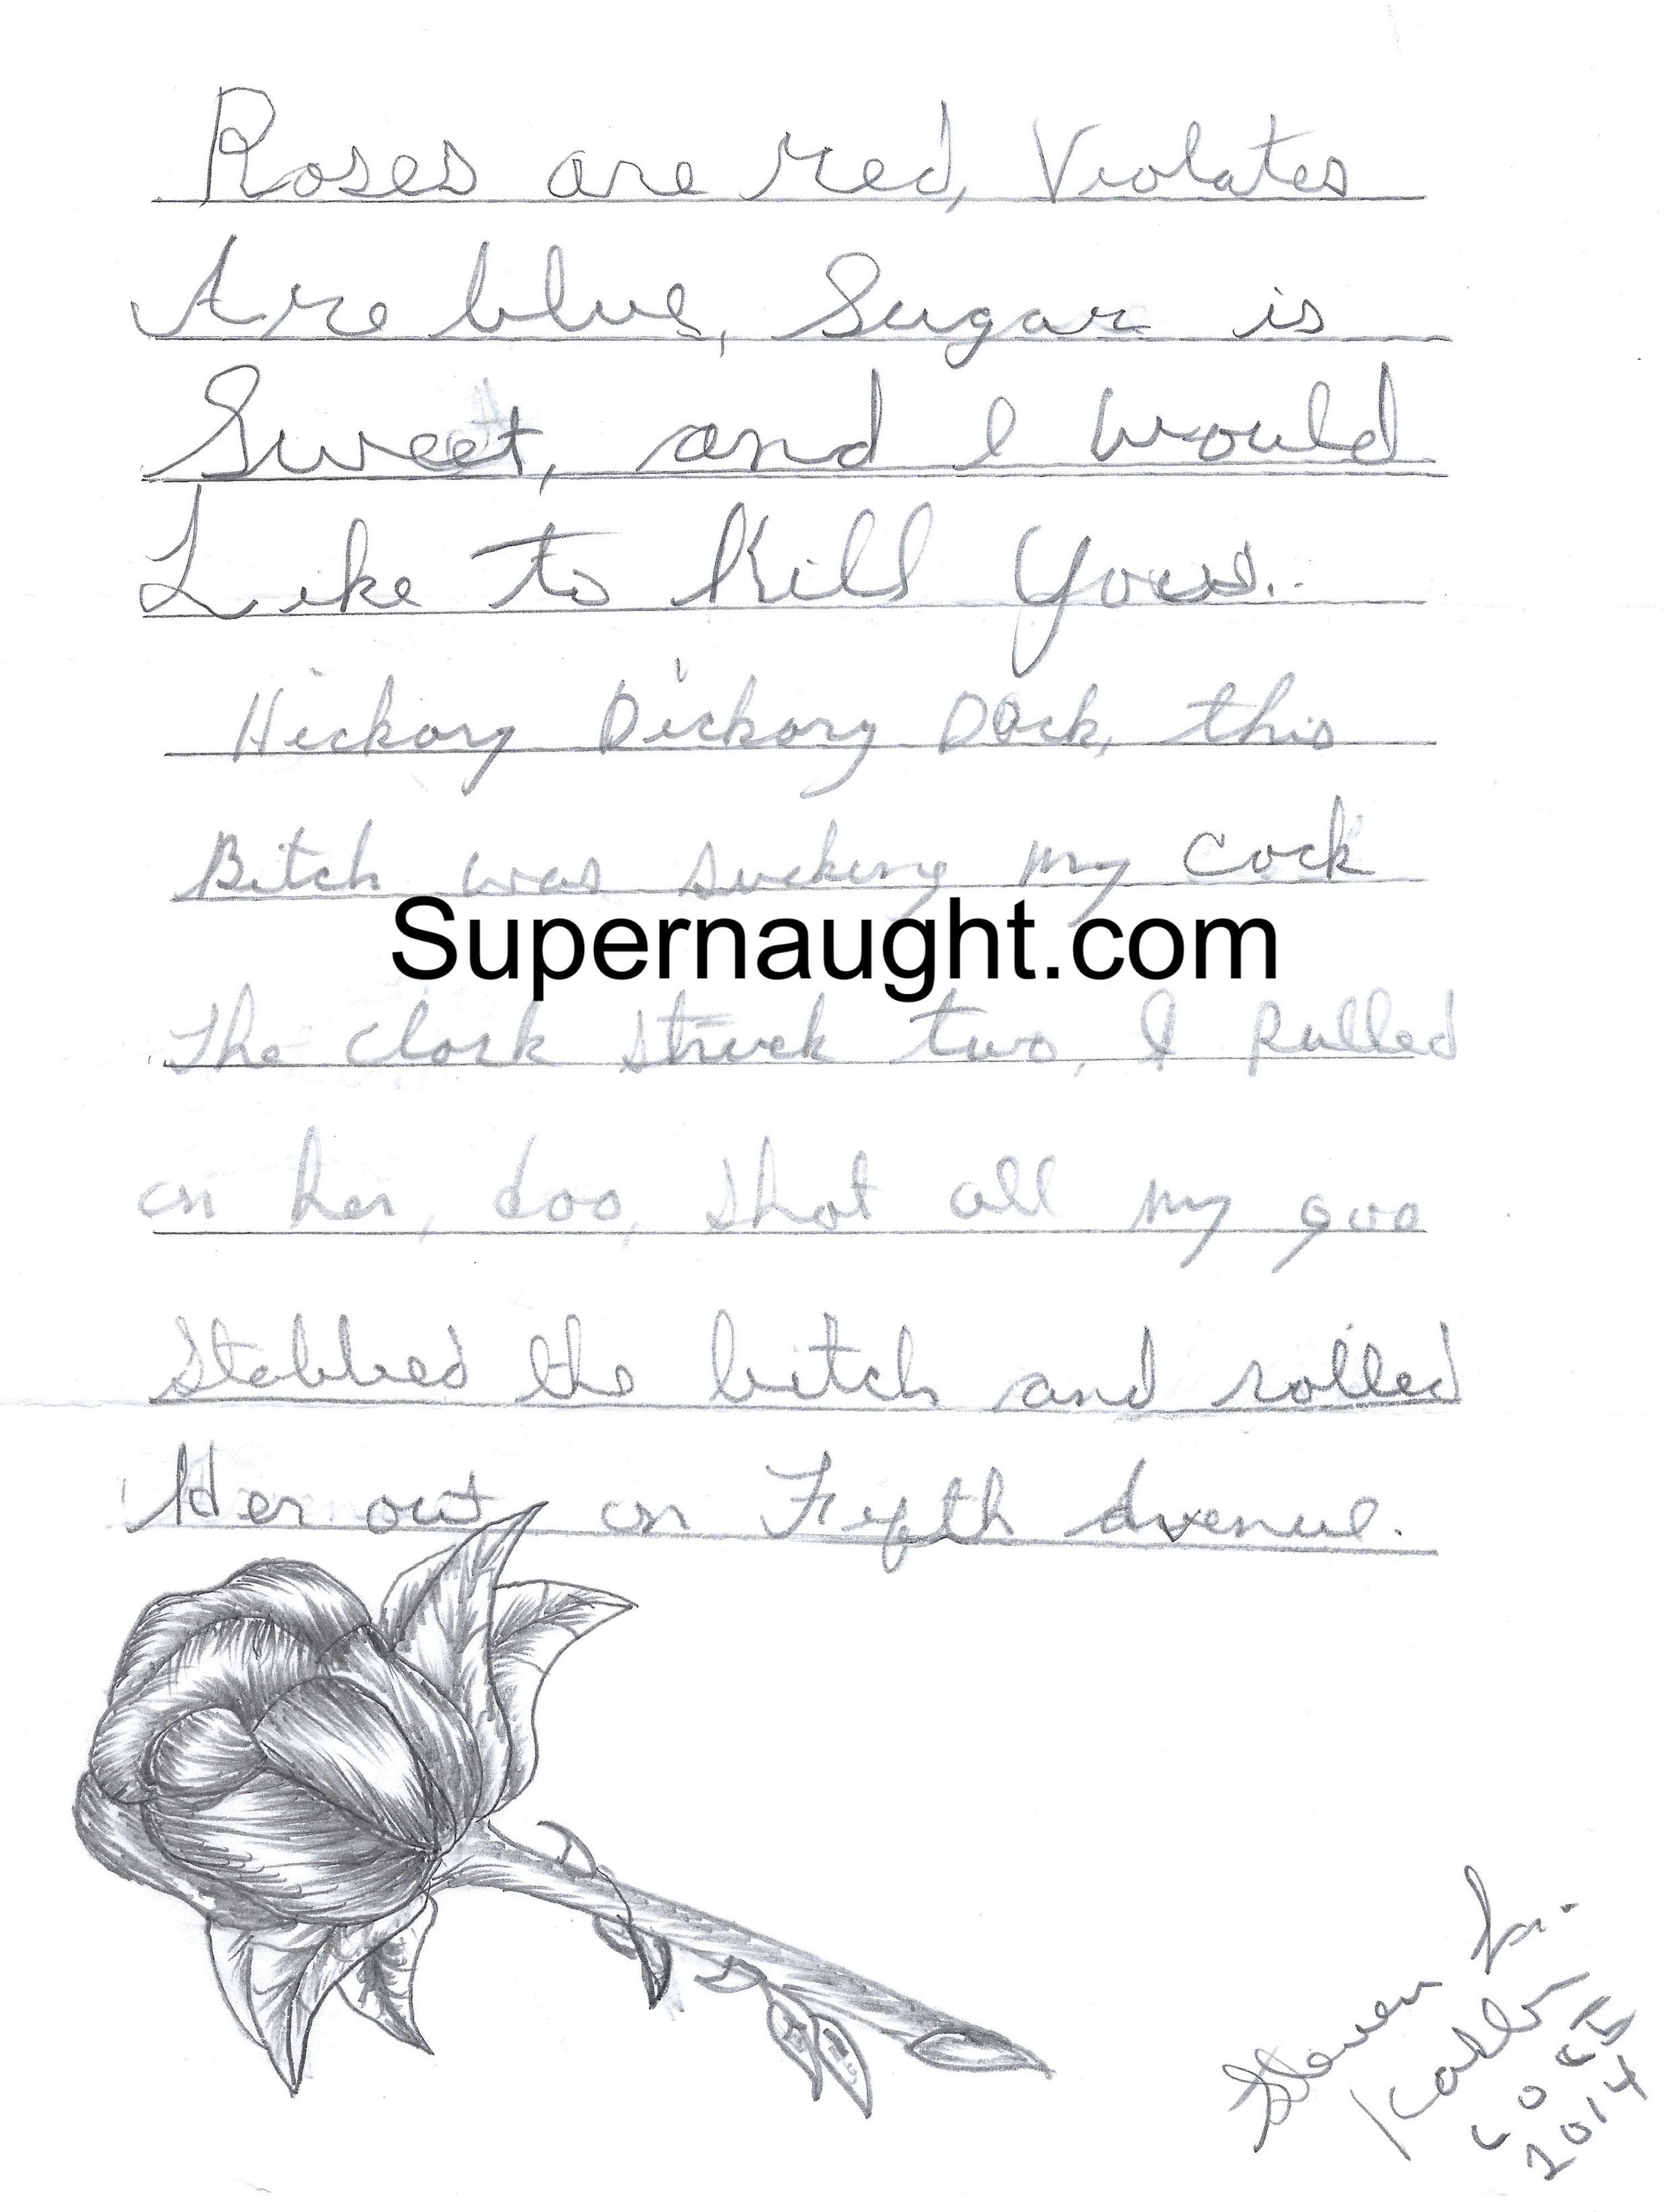 Roses are red, Violates
Are blue, Sugar is
Sweet, and I would
Like to Kill You..
Hickory Dickory Dock, this
Bitch was sucking my Cock
Supernaught.com
The clock struck two, I pulled
on her, doo, shot all my goo
Stabbed the bitch and rolled
Her out on Fifth Avenue.
Steven Jr.
2014